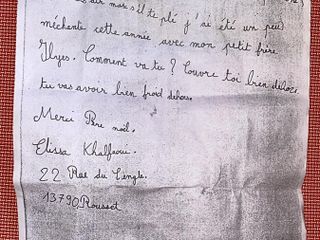 mais s'il te plé j'ai été un peu
méchente cette année avec mon petit frère
Ilyes. Comment va tu ? Couvre toi bien
tu vas avoir bien froid dehors.
Merci Père noël.
Elissa Khalfaoui.
22 Rue du
13790 Rousset